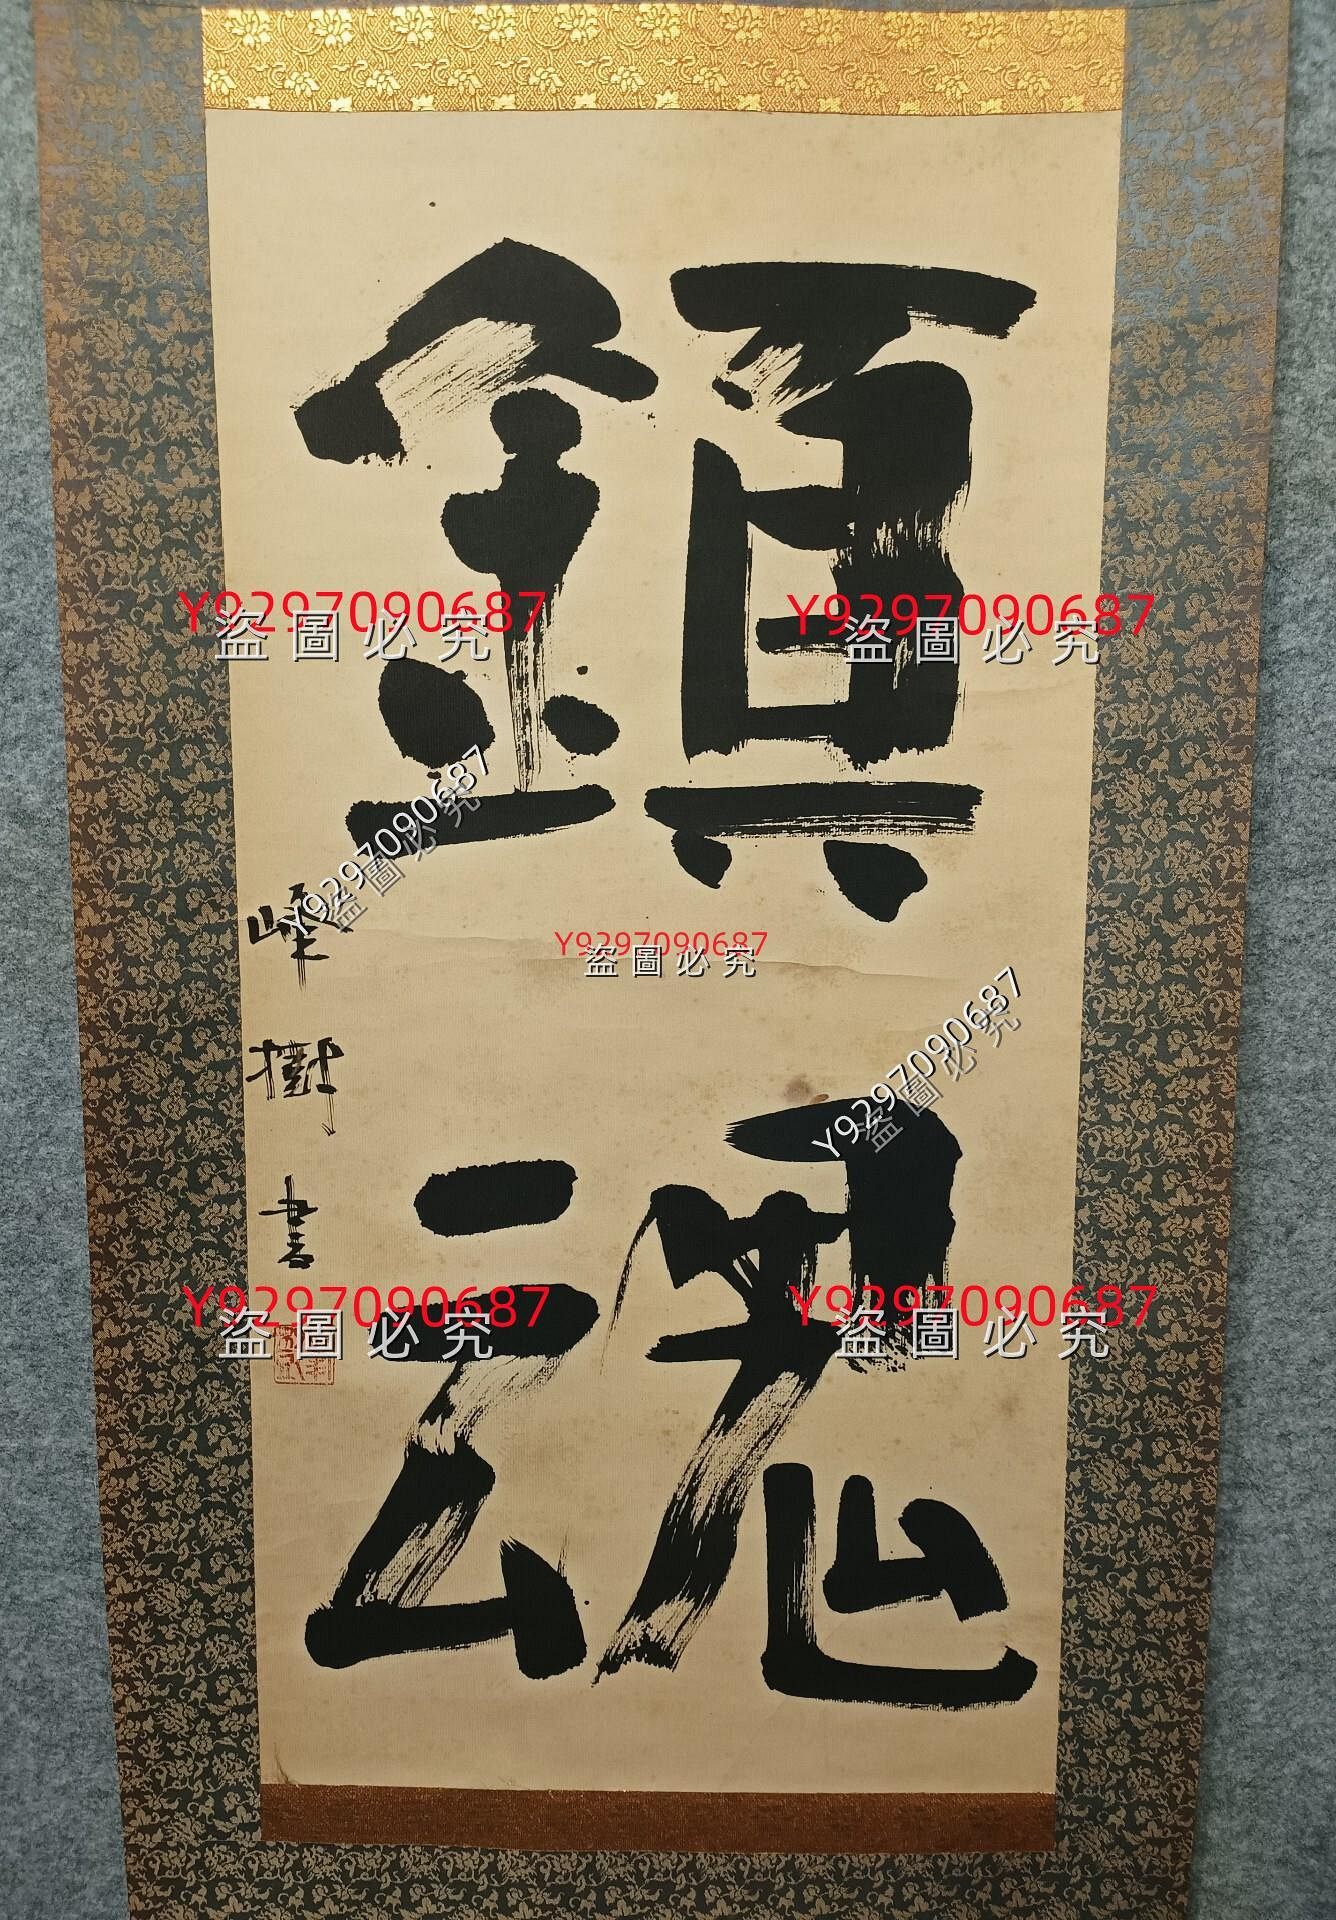 鎮魂
峰樹書
Y9297090687
盗圖必究
Y9297090687
盗圖必究
Y9297090687
盗圖必究
Y9297090687
盗圖必究
Y9297090687
盗圖必究
Y9297090687
盗圖必究
Y9297090687
盗圖必究